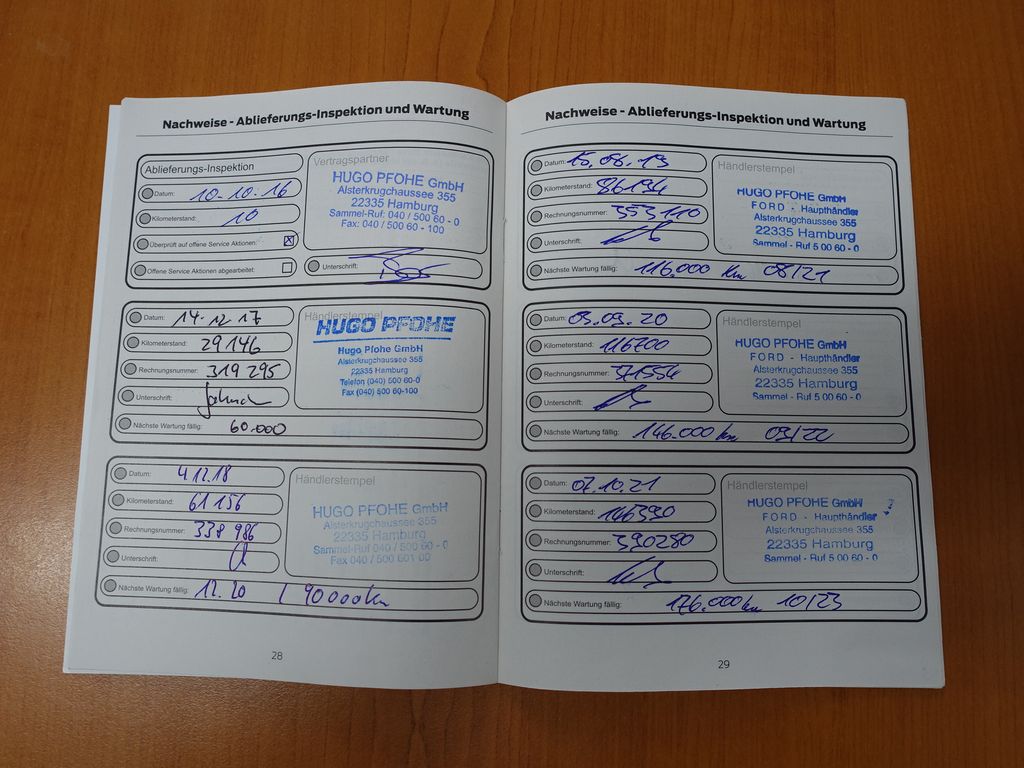 Nachweise - Ablieferungs-Inspektion und Wartung
Ablieferungs-Inspektion
Datum: 10-10-16
Kilometerstand: 10
Überprüft auf offene Service Aktionen: ☒
Offene Service Aktionen abgearbeitet: ☐
Vertragspartner
HUGO PFOHE GmbH
Alsterkrugchaussee 355
22335 Hamburg
Sammel-Ruf: 040 / 500 60 - 0
Fax: 040 / 500 60 - 100
Unterschrift:
Datum: 14-12-17
Kilometerstand: 29146
Rechnungsnummer: 319 295
Unterschrift:
Nächste Wartung fällig: 60.000
Händlerstempel
HUGO PFOHE
Hugo Pfohe GmbH
Alsterkrugchaussee 355
22335 Hamburg
Telefon (040) 500 60-0
Fax (040) 500 60-100
Datum: 4 12.18
Kilometerstand: 61 156
Rechnungsnummer: 338 986
Unterschrift:
Nächste Wartung fällig: 12.20 / 90000km
Händlerstempel
HUGO PFOHE GmbH
Alsterkrugchaussee 355
22335 Hamburg
Sammel-Ruf 040 / 500 60 - 0
Fax 040 / 500 601 00
28
Nachweise - Ablieferungs-Inspektion und Wartung
Datum: 15.08.19
Kilometerstand: 86194
Rechnungsnummer: 353110
Unterschrift:
Nächste Wartung fällig: 116.000 km 08/21
Händlerstempel
HUGO PFOHE GmbH
FORD - Haupthändler
Alsterkrugchaussee 355
22335 Hamburg
Sammel - Ruf 5 00 60 - 0
Datum: 03.09.20
Kilometerstand: 116700
Rechnungsnummer: 371554
Unterschrift:
Nächste Wartung fällig: 146.000 km 09/22
Händlerstempel
HUGO PFOHE GmbH
FORD - Haupthändler
Alsterkrugchaussee 355
22335 Hamburg
Sammel - Ruf 5 00 60 - 0
Datum: 07.10.21
Kilometerstand: 146390
Rechnungsnummer: 390280
Unterschrift:
Nächste Wartung fällig: 176.000 km 10/23
Händlerstempel
HUGO PFOHE GmbH
FORD - Haupthändler
Alsterkrugchaussee 355
22335 Hamburg
Sammel - Ruf 5 00 60 - 0
29